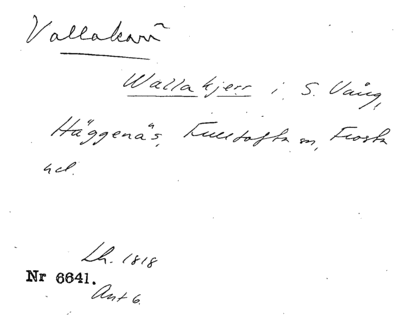 Vallakärr
Wallakjerr i S. Vång,
Häggenäs, Fulltofta sn, Frosta
hd.
Lh. 1818
Nr 6641.
Akt 6.